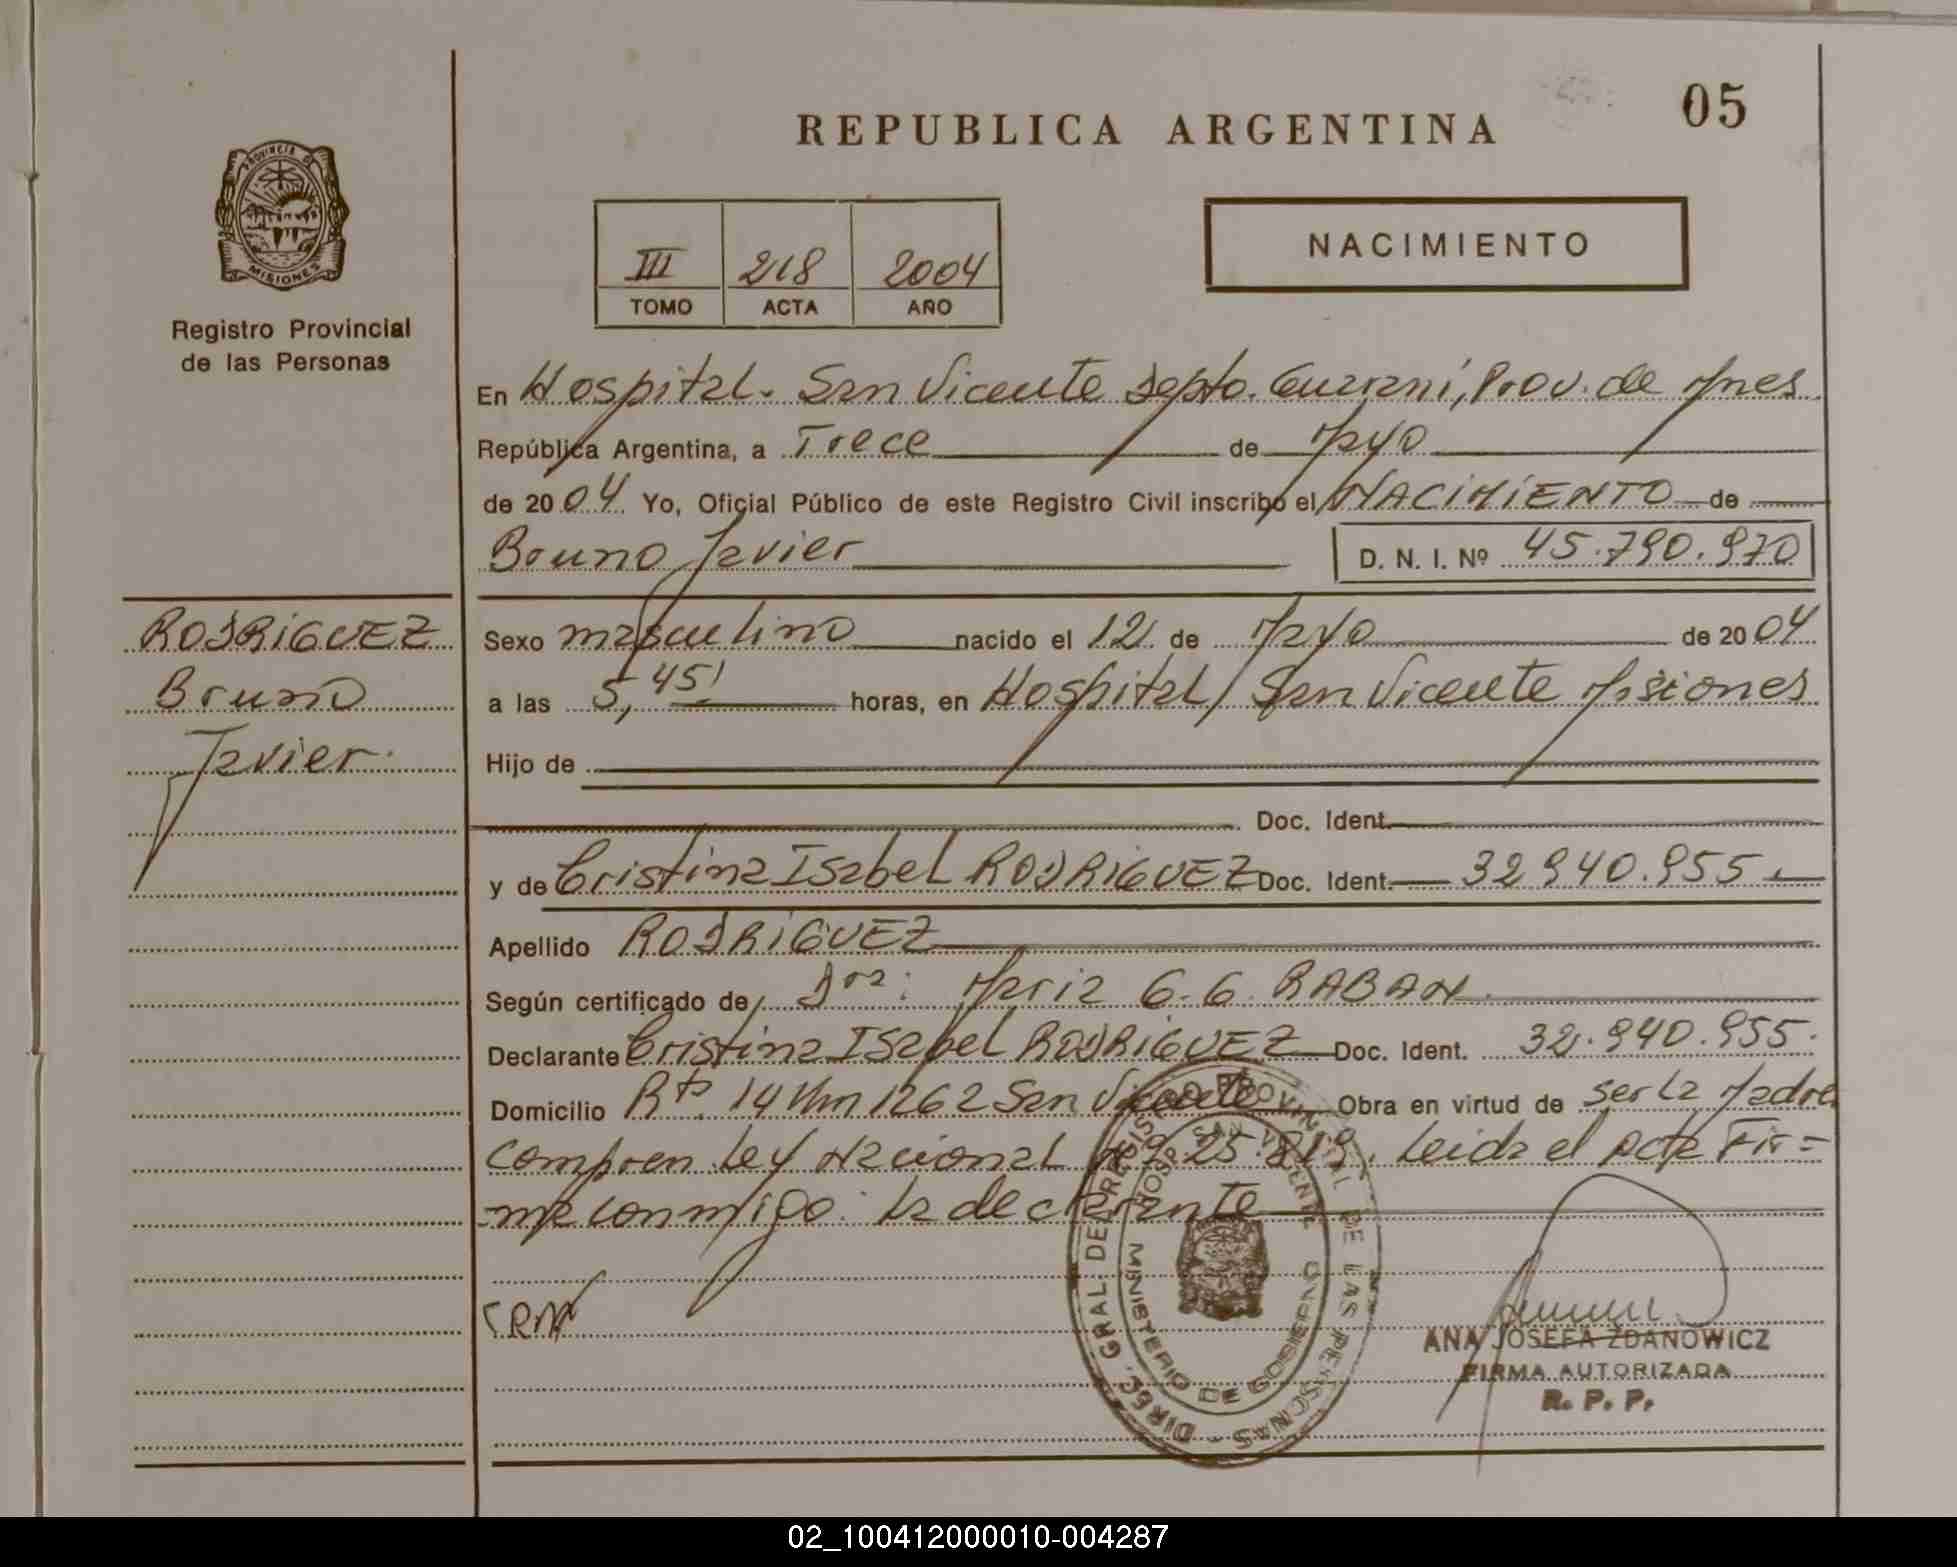 05
REPUBLICA ARGENTINA
PROVINCIA DE
MISIONES
Registro Provincial
de las Personas
III 218 2004
TOMO ACTA AÑO
NACIMIENTO
En Hospital. San Vicente Depto. Guaraní, Prov. de Mnes
República Argentina, a Trece de Mayo
de 2004 Yo, Oficial Público de este Registro Civil inscribo el NACIMIENTO de
Bruno Javier D. N. I. Nº 45.790.970
RODRIGUEZ
Bruno
Javier.
Sexo masculino nacido el 12 de Mayo de 2004
a las 5,45' horas, en Hospital San Vicente Misiones
Hijo de
Doc. Ident.
y de Cristina Isabel RODRIGUEZ Doc. Ident. 32.940.955.
Apellido RODRIGUEZ
Según certificado de Dra: Maria G. G. RABAN
Declarante Cristina Isabel RODRIGUEZ Doc. Ident. 32.940.955.
Domicilio Rta. 14 Km 1262 San Vicente Obra en virtud de ser la Madre
Compren. Ley Nacional Nº 25.819. Leida el Acta Fir=
-ma conmigo: la declarante
CRN
DIREC. GRAL. DE REGISTRO PROVINCIAL DE LAS PERSONAS
MINISTERIO DE GOBIERNO
HOSP. SAN VICENTE
ANA JOSEFA ZDANOWICZ
FIRMA AUTORIZADA
R. P. P.
02_100412000010-004287